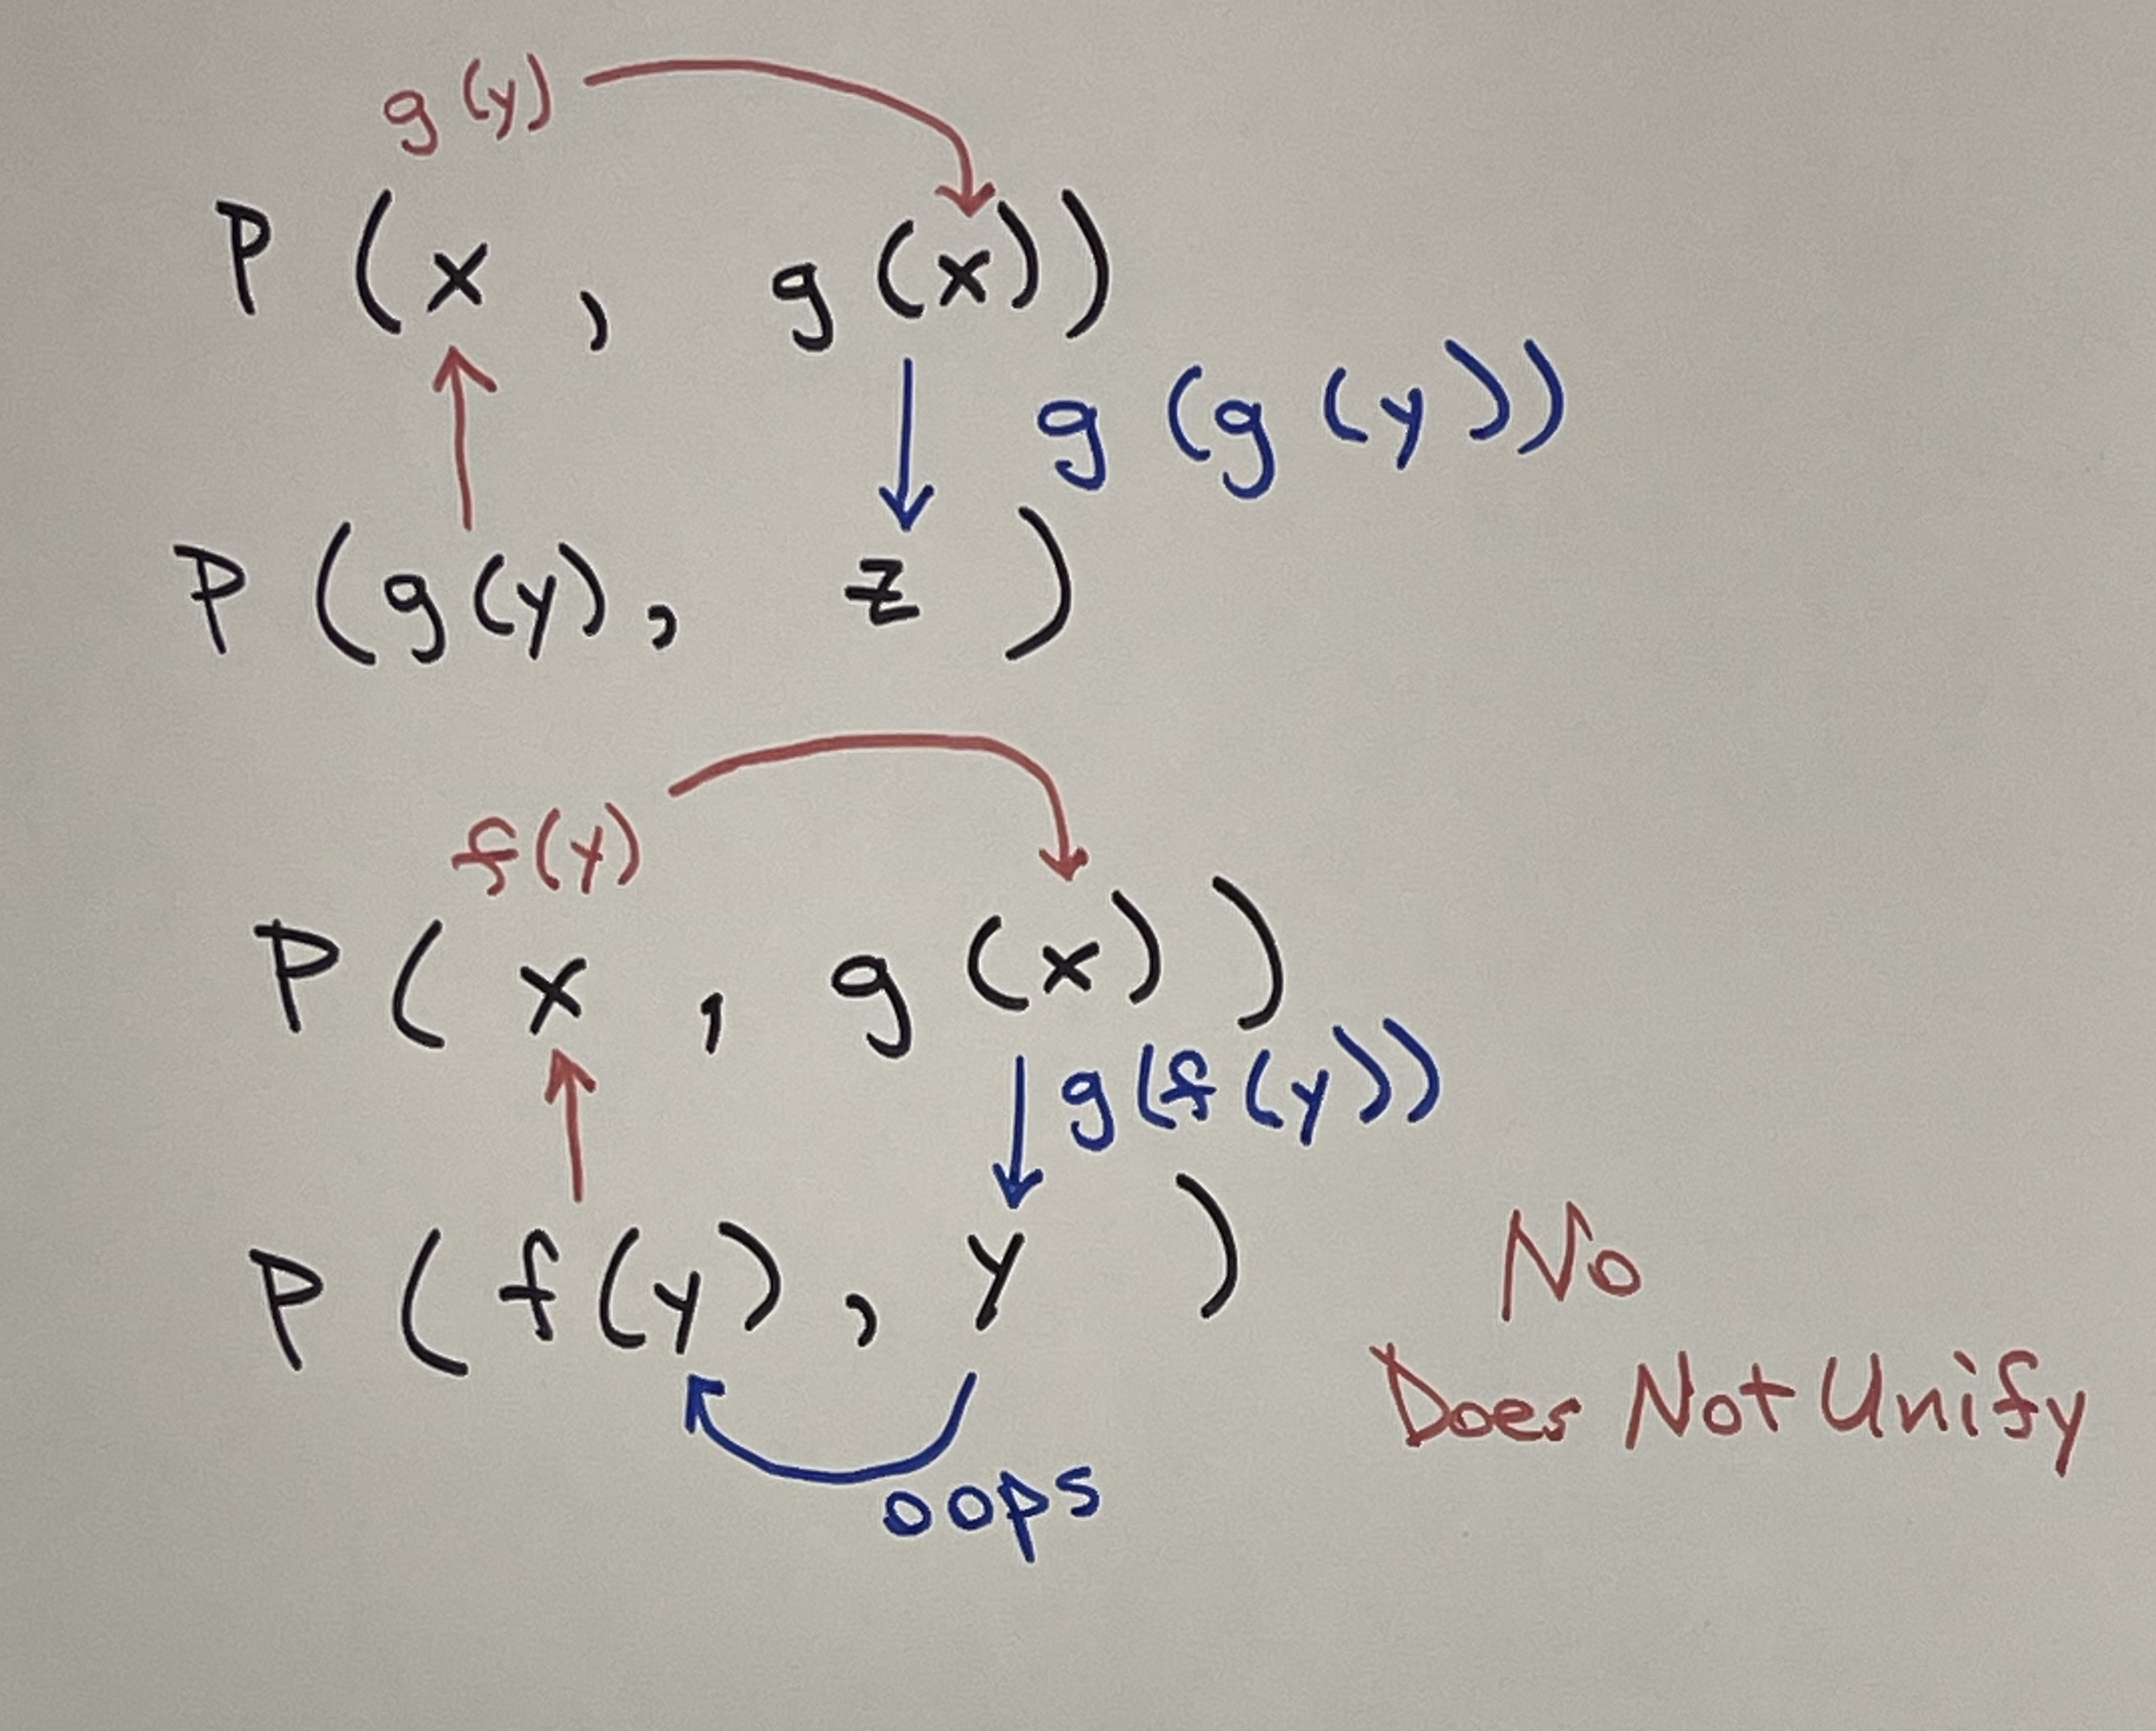 g(y)
P(x, g(x))
g(g(y))
P(g(y), z)
f(y)
P(x, g(x))
g(f(y))
P(f(y), y)
No
Does Not Unify
oops